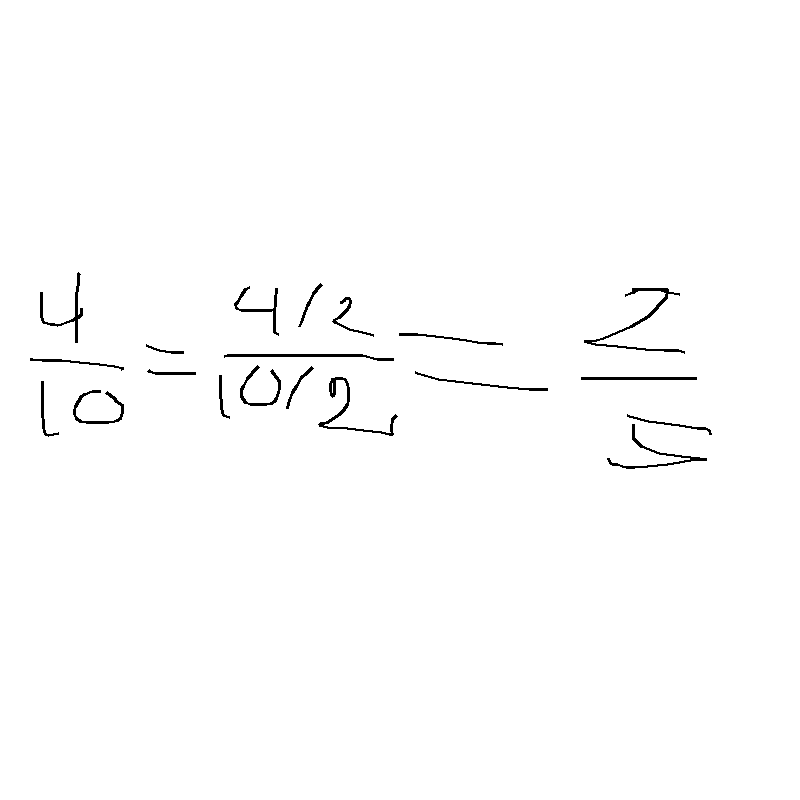 4/10 = (4/2)/(10/2) = 2/5